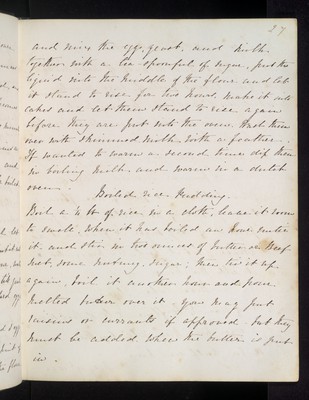 27
and mix the eggs, yeast, and milk
together with a tea spoonful of sugar, put the
liquid into the middle of the flour and let
it stand to rise for two hours, make it into
cakes and let them stand to rise again
before they are put into the oven. Wash them
over with skimmed milk with a feather.
If wanted to warm a second time dip them
in boiling milk and warm in a dutch
oven.
Boiled rice Pudding.
Boil a ¼ lb of rice in a cloth, leave it room
to swell, when it has boiled an hour untie
it and stir in two ounces of butter or Beef
suet, some nutmeg, sugar, then tie it up
again, boil it another hour and pour
melted butter over it. you may put
raisins or currants if approved but they
must be added when the butter is put
in.